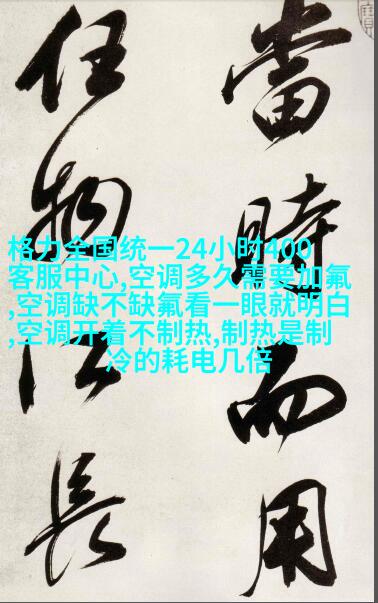 當時而用
任物以長
格力全国统一24小时400
客服中心,空调多久需要加氟
,空调缺不缺氟看一眼就明白
,空调开着不制热,制热是制
冷的耗电几倍